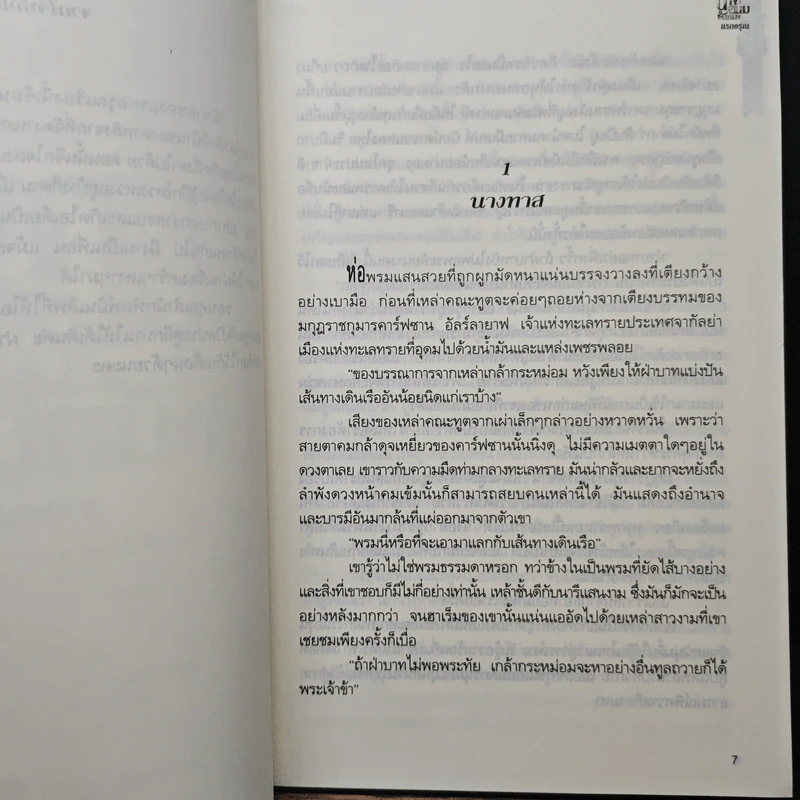 นรกอรุณ
1
นางทาส
ห่อพรมแสนสวยที่ถูกผูกมัดหนาแน่นบรรจงวางลงที่เตียงกว้าง
อย่างเบามือ ก่อนที่เหล่าคณะทูตจะค่อยๆถอยห่างจากเตียงบรรทมของ
มกุฎราชกุมารคาร์ฟซาน อัลร์ลายาฟ เจ้าแห่งทะเลทรายประเทศจากัลย่า
เมืองแห่งทะเลทรายที่อุดมไปด้วยน้ำมันและแหล่งเพชรพลอย
“ของบรรณาการจากเหล่าเกล้ากระหม่อม หวังเพียงให้ฝ่าบาทแบ่งปัน
เส้นทางเดินเรืออันน้อยนิดแก่เราบ้าง”
เสียงของเหล่าคณะทูตจากเผ่าเล็กๆกล่าวอย่างหวาดหวั่น เพราะว่า
สายตาคมกล้าดุจเหยี่ยวของคาร์ฟซานนั้นนิ่งดุ ไม่มีความเมตตาใดๆอยู่ใน
ดวงตาเลย เขาราวกับความมืดท่ามกลางทะเลทราย มันน่ากลัวและยากจะหยั่งถึง
ลำพังดวงหน้าคมเข้มนั้นก็สามารถสยบคนเหล่านี้ได้ มันแสดงถึงอำนาจ
และบารมีอันมากล้นที่แผ่ออกมาจากตัวเขา
“พรมนี่หรือที่จะเอามาแลกกับเส้นทางเดินเรือ”
เขารู้ว่าไม่ใช่พรมธรรมดาหรอก ทว่าข้างในเป็นพรมที่ยัดไส้บางอย่าง
และสิ่งที่เขาชอบก็มีไม่กี่อย่างเท่านั้น เหล้าชั้นดีกับนารีแสนงาม ซึ่งมันก็มักจะเป็น
อย่างหลังมากกว่า จนฮาเร็มของเขานั้นแน่นแออัดไปด้วยเหล่าสาวงามที่เขา
เชยชมเพียงครั้งก็เบื่อ
“ถ้าฝ่าบาทไม่พอพระทัย เกล้ากระหม่อมจะหาอย่างอื่นทูลถวายก็ได้
พระเจ้าข้า”
7